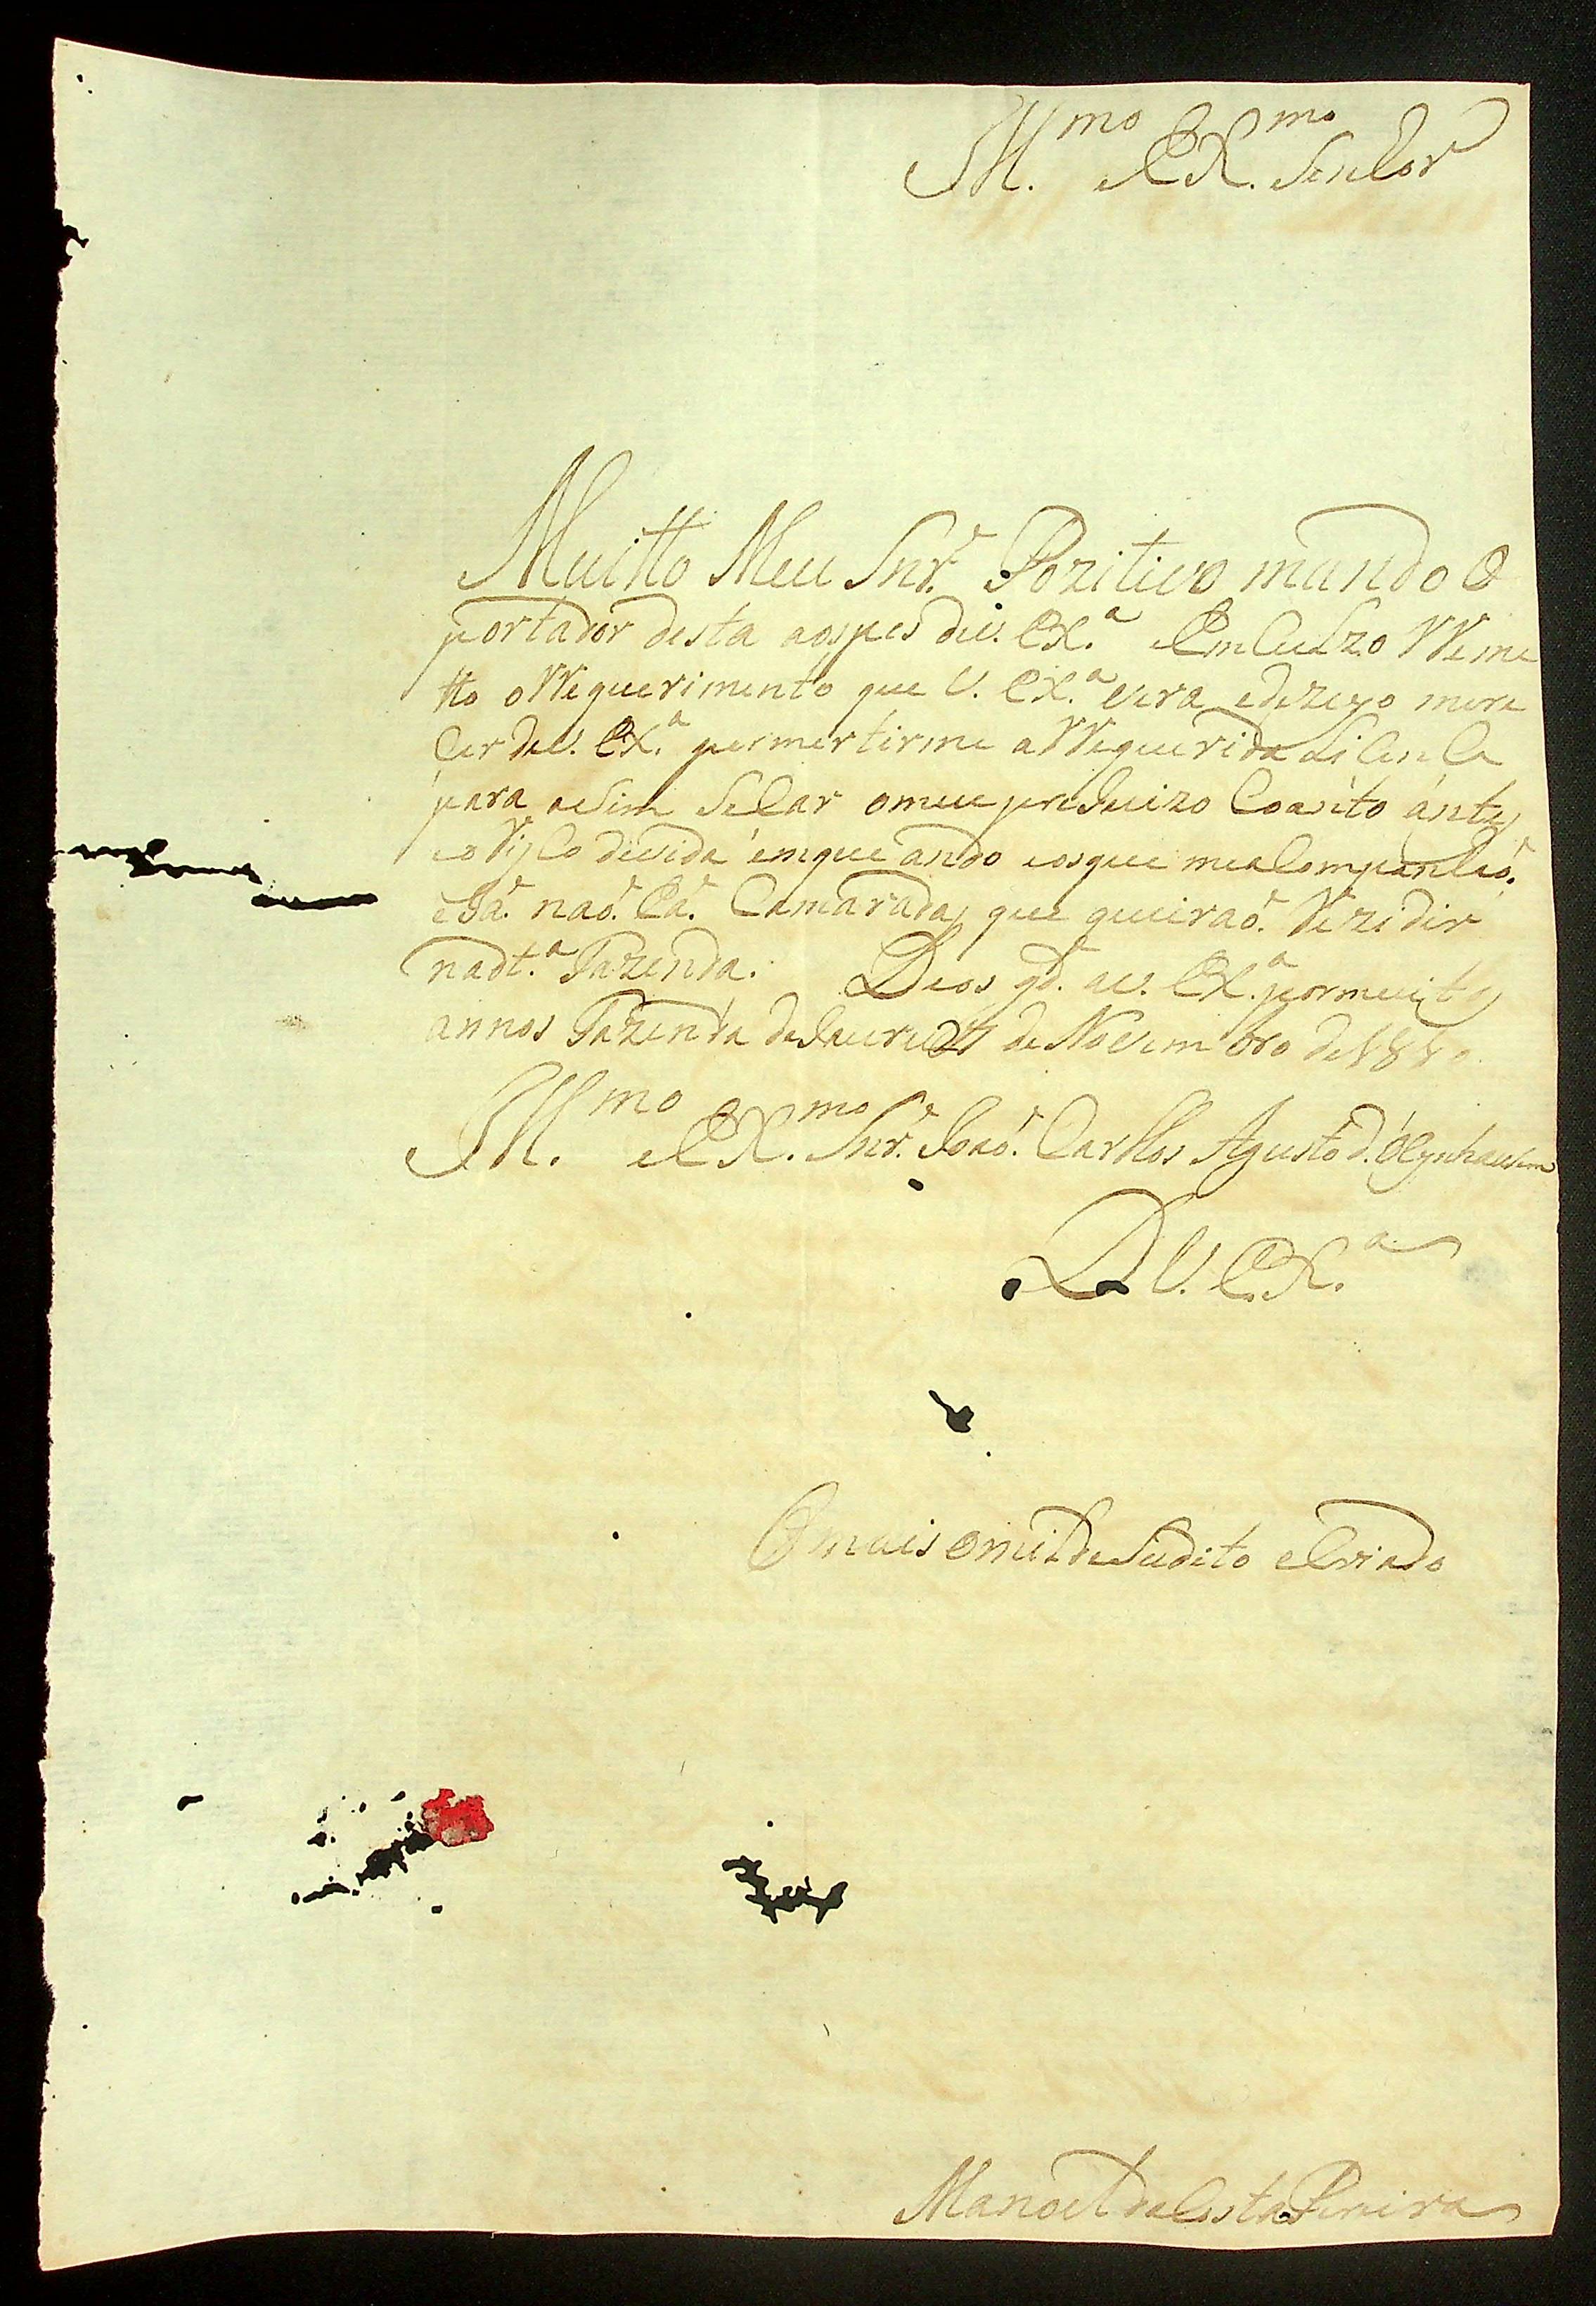 Ill.mo e Ex.mo Senhor
Muitto Meu Snr.ͬ Pozitivo mando O
portador desta aos pes de V. Ex.ª em cullzo Reme
tto o Requerimento que V. Ex.ª vera e dezeyo mere
cer de V. Ex.ª permertirme a Requerida Licença
para asim secar o meu prejuizo Coanto ántes
eo Risco de vida émque ando e os que mea Companhaõ.
e Já. naõ. Há. Camaradas que queiraõ. Rezidir
na dt.ª Fazenda. Deos gd.ͤ a V. Ex.ª por muitos
annos Fazenda de 27 de Novembro de
Ill.mo e Ex.mo Snr.ͬ Joaõ. Carllos Agusto d'. Oeynhausem
D V. Ex.ª
O mais omilde Sudito e Criado
Manoel da Costa Pereira